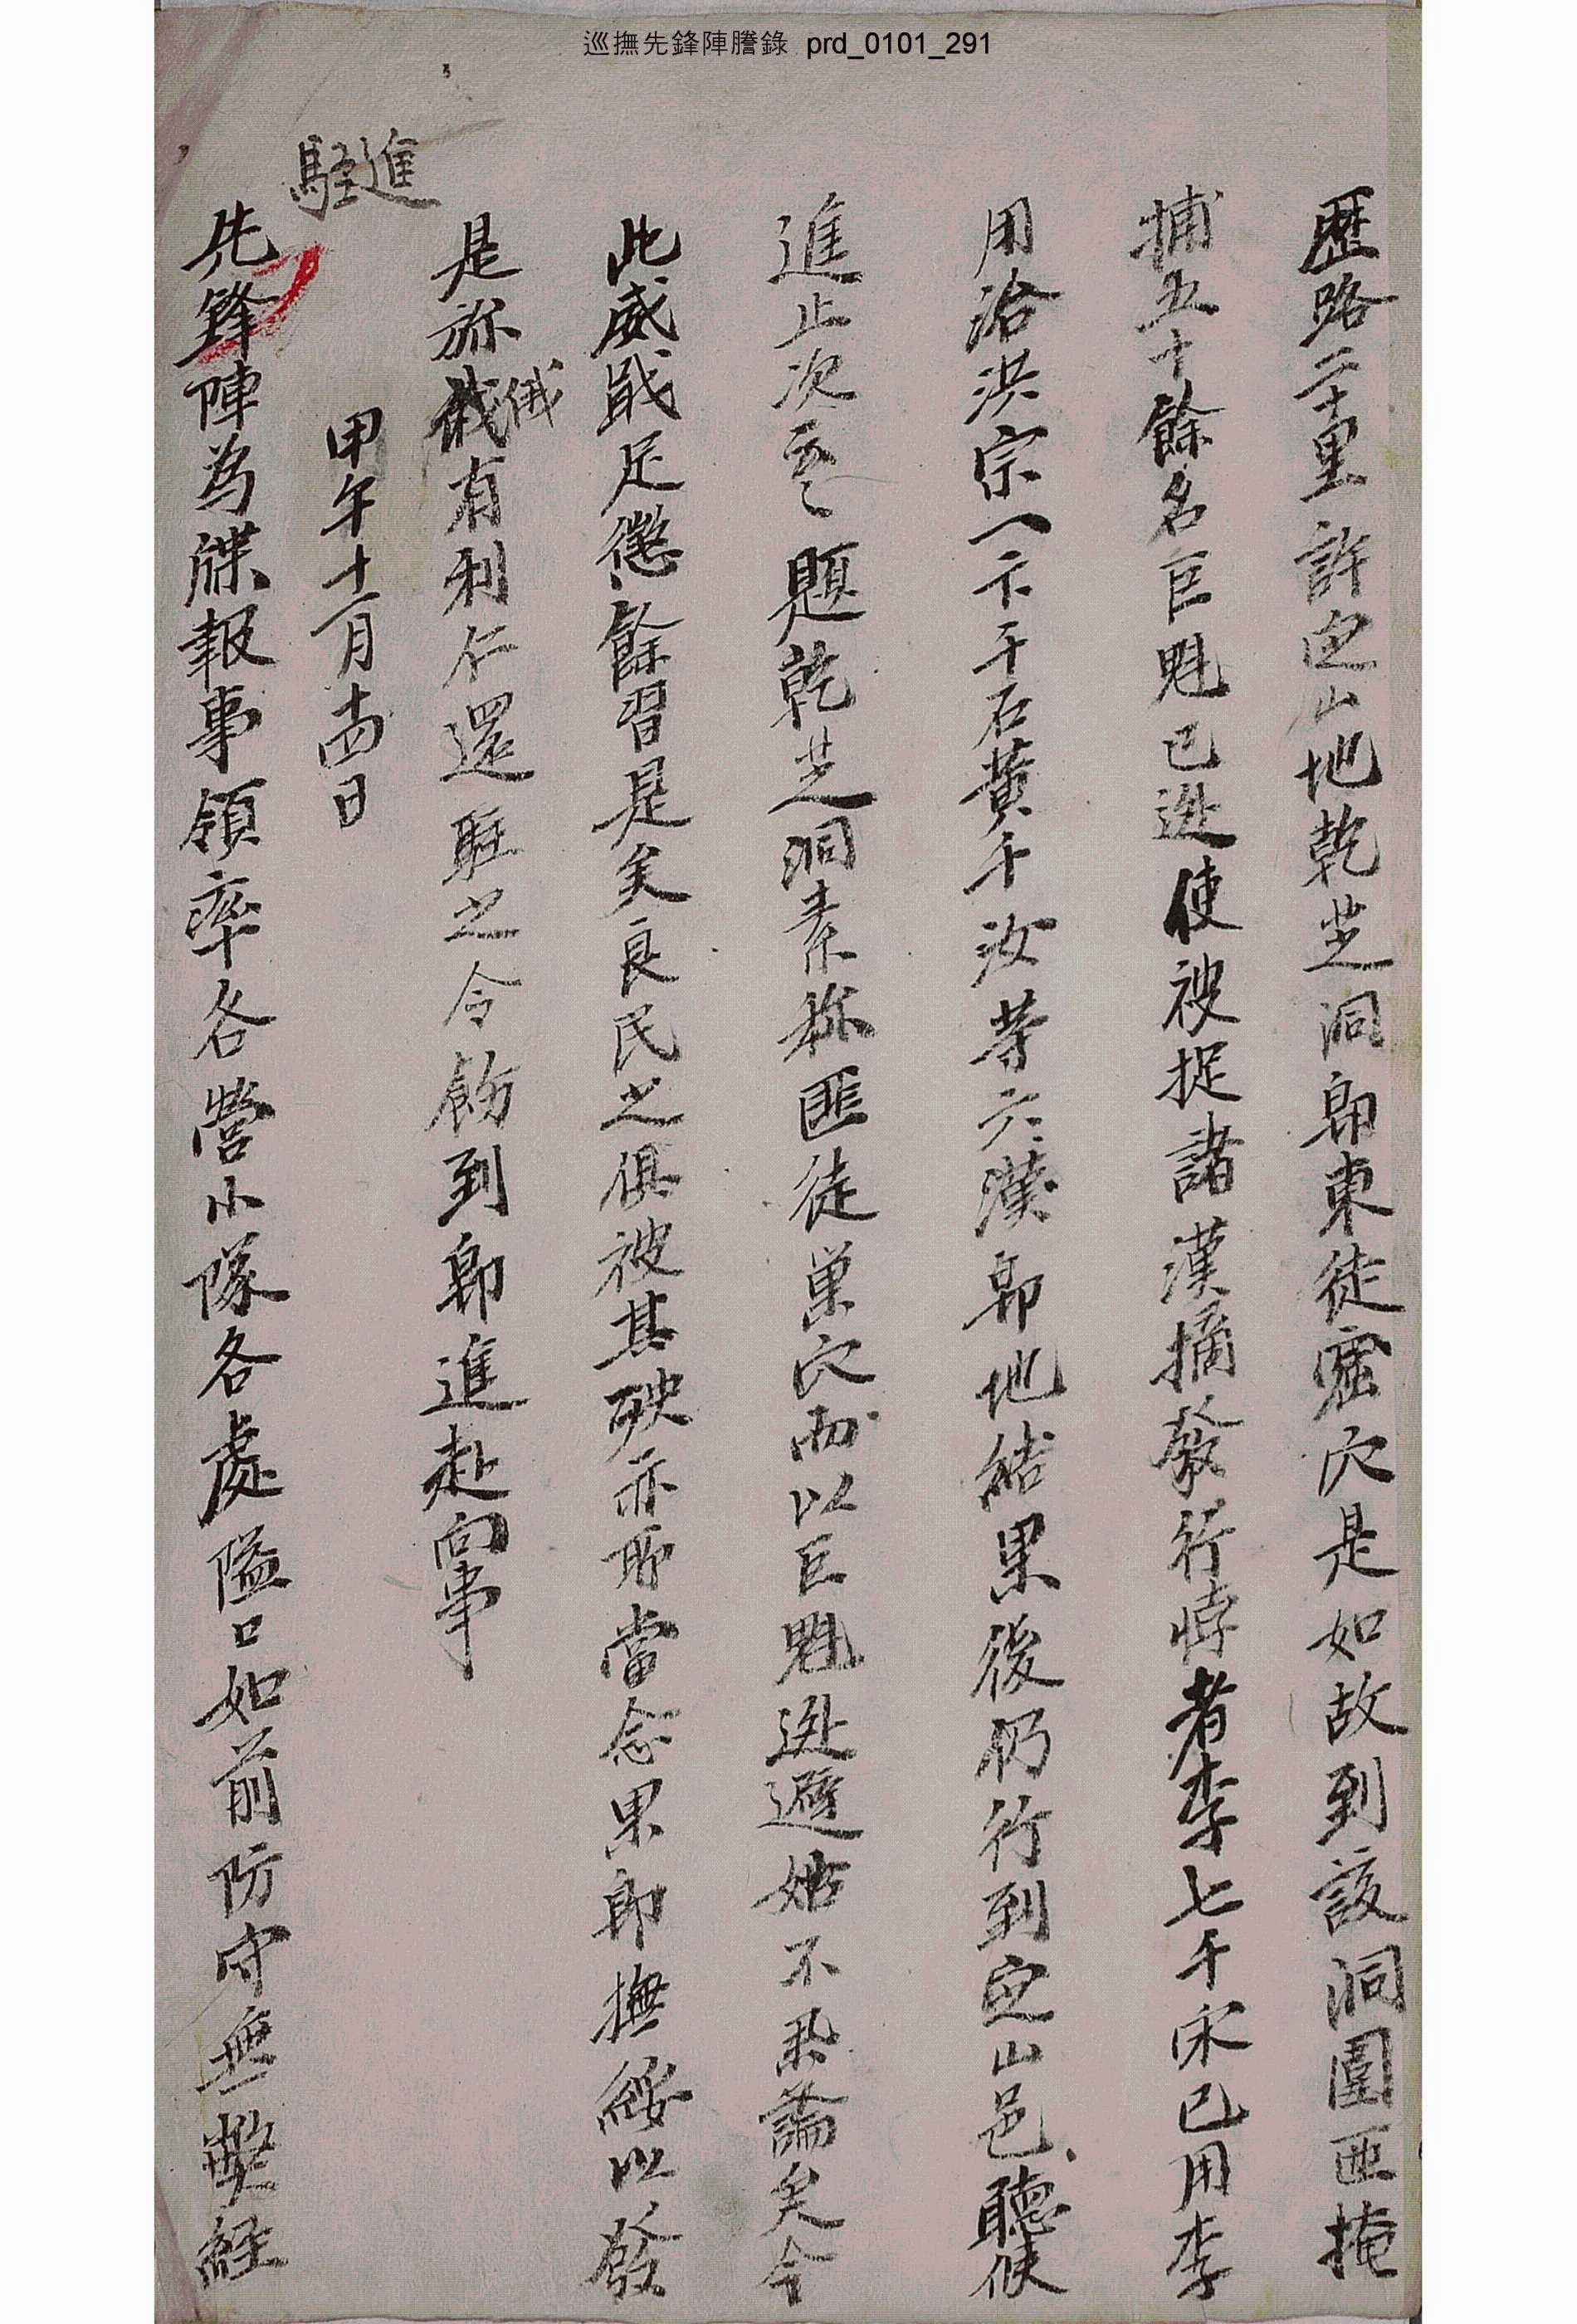 巡撫先鋒陣謄錄 prd_0101_291
歷路二十里許宝山地乾芝洞卽東徒窟穴是如故到該洞圍匝掩
捕五十餘名巨魁已迯使被捉諸漢摘發行悖者李七千宋已用李
用洽洪宗一卞千石黃千汝等六漢卽地結果後仍行到宝山邑聽候
進止次 題乾芝洞素称匪徒巢穴而以巨魁迯避姑不思論矣今
此威戢足懲餘習是矣良民之俱被其殃亦所當念果卽撫綏以發
是旀俄俄有利仁還駐之令飭到卽進赴向事
進駐
甲午十一月十四日
先鋒陣為牒報事領率各營小隊各處隘口如前防守無弊経